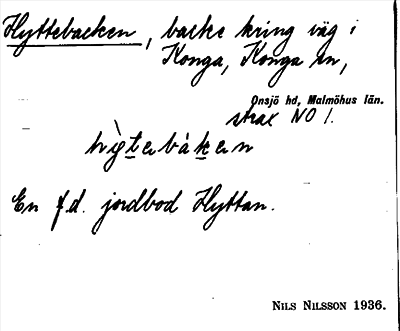 Hyttebacken, backe kring väg i
Konga, Konga sn,
Onsjö hd, Malmöhus län.
strax NO 1.
En f.d. jordbod Hyttan.
NILS NILSSON 1936.